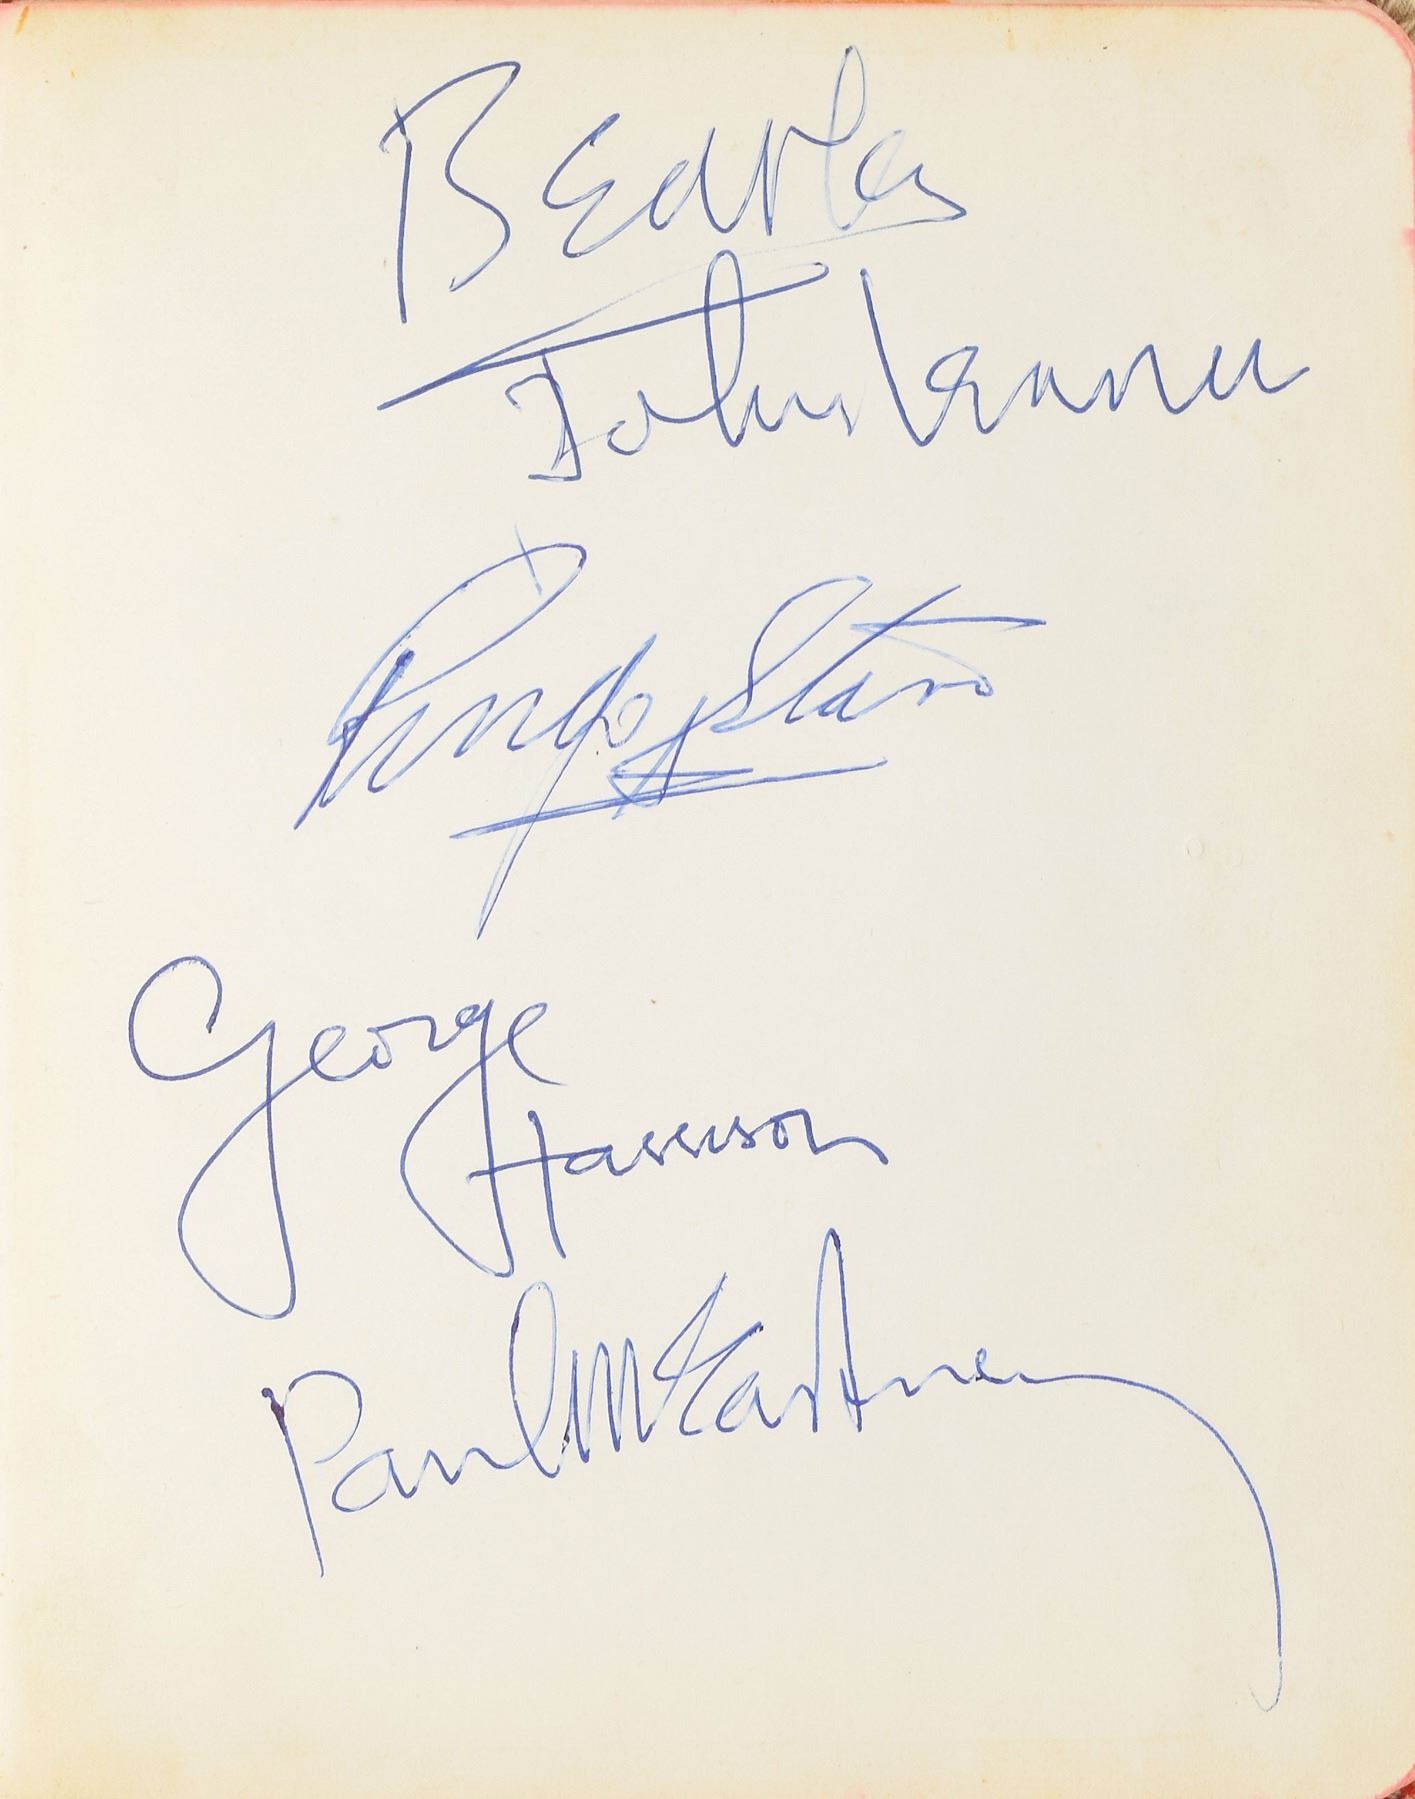 BEATLES
John Lennon
Ringo Starr
George
Harrison
Paul McCartney